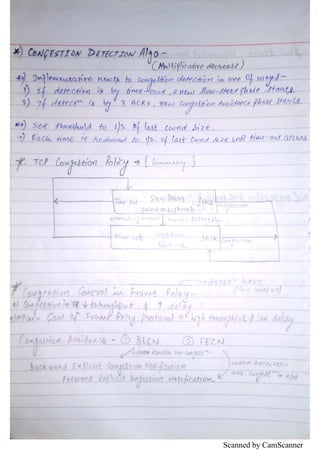 *) CONGESTION DETECTION Algo -
(Multiplicative decrease)
*) Implementation reacts to congestion detection in one of ways -
1) If detection is by time-out, a new slow-start phase starts.
2) If detecn is by 3 ACKs, new Congestion Avoidance phase starts.
*) Set threshold to 1/2 of last cwnd size.
→ Each time it reduced to 1/2 of last cwnd size until time-out occurs
*. TCP Congestion Policy → [Summary]
Time-out Slow Start 3ACK Congestion
Time-out Congestion Avoidance 3ACK Congestion
→ doesn't have
*. Congestion Control in Frame Relay - flow control
*) Congestion in FR ↓ throughput & ↑ delay
*) Main Goal of Frame Relay Protocol → high throughput & low delay
Congestion Avoidance - ① BECN ② FECN
Backward Explicit Congestion Notification
Forward Explicit Congestion Notification
Scanned by CamScanner